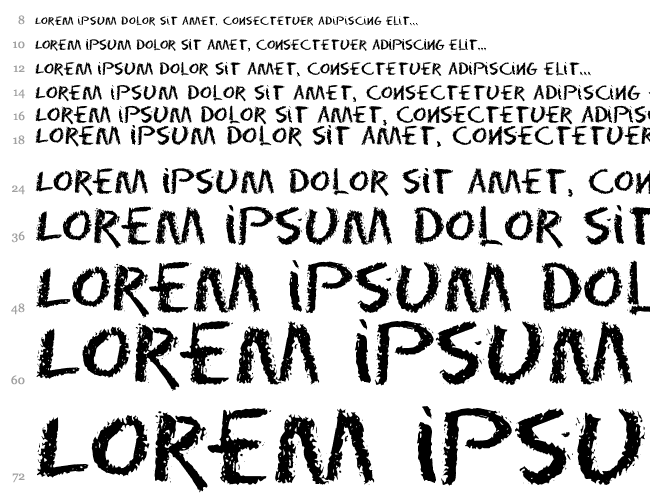 8 LOREM IPSUM DOLOR SIT AMET, CONSECTETUER ADIPISCING ELIT...
10 LOREM IPSUM DOLOR SIT AMET, CONSECTETUER ADIPISCING ELIT...
12 LOREM IPSUM DOLOR SIT AMET, CONSECTETUER ADIPISCING ELIT...
14 LOREM IPSUM DOLOR SIT AMET, CONSECTETUER ADIPISCING
16 LOREM IPSUM DOLOR SIT AMET, CONSECTETUER ADIPISC
18 LOREM IPSUM DOLOR SIT AMET, CONSECTETUER
24 LOREM IPSUM DOLOR SIT AMET, CON
36 LOREM IPSUM DOLOR SIT
48 LOREM IPSUM DOL
60 LOREM IPSUM
72 LOREM IPSU